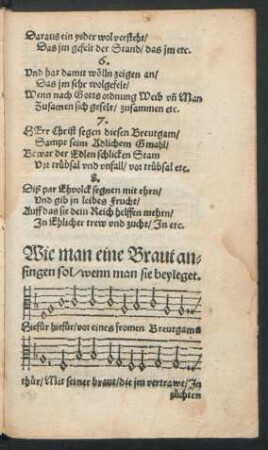 Daraus ein yeder wol versteht/
Das jm gefelt der Stand/ das jm etc.
6.
Und hat damit wölln zeigen an/
Das jm sehr wolgefelt/
Wenn nach Gotts ordnung Weib vñ Man
Zusamen sich geselt/ zusammen etc.
7.
HErr Christ segen diesen Breutgam/
Sampt seim Adlichem Gmahl/
Bewar der Edlen schlicken Stam
Vor trübsal vnd vnfall/ vor trübsal etc.
8.
Diß par Ehvolck segnen mit ehrn/
Vnd gib jn leibes Frucht/
Auff das sie dein Reich helffen mehrn/
In Ehlicher trew vnd zucht/ In etc.
Wie man eine Braut an-
singen sol/ wenn man sie beyleget.
Hiefür hiefür/ vor eines fromen Breutgams
thür/ Mit seiner braut/ die jm vertrawt/ In
züchten